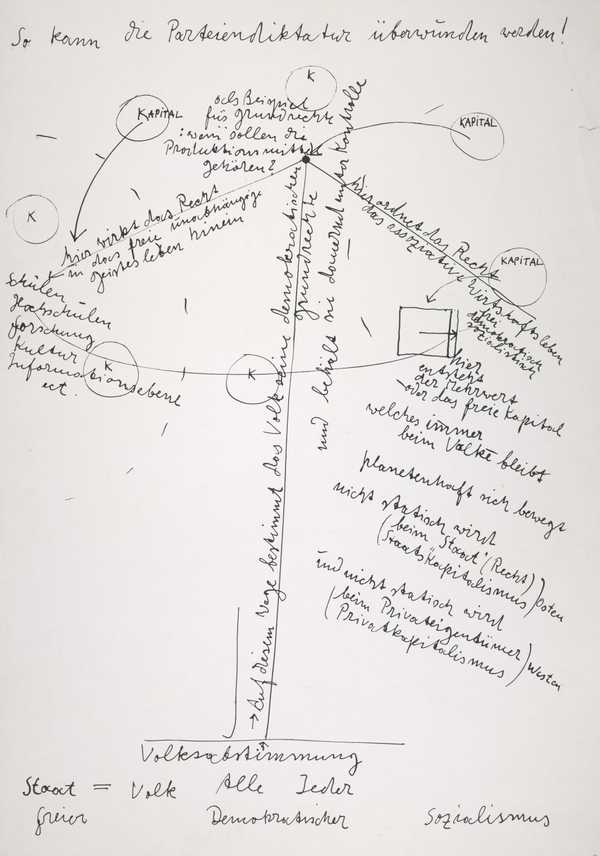 So kann die Parteiendiktatur überwunden werden!
K
KAPITAL
als Beispiel
für Grundrechte
: wem sollen die
Produktionsmittel
gehören?
KAPITAL
K
hier wirkt das Recht
in das freie unabhängige
Geistesleben hinein
hier ordnet das Recht
das assoziative Wirtschaftsleben
frei
demokratisch
sozialistisch
KAPITAL
Schulen
Hochschulen
Forschung
Kultur
Informationsebene
ect.
K
K
hier
entsteht
der Mehrwert
oder das freie Kapital
welches immer
beim Volke bleibt
planetenhaft sich bewegt
nicht statisch wird
(beim "Staat" (Recht)
(Staatskapitalismus) Osten
und nicht statisch wird
(beim Privateigentümer)
(Privatkapitalismus) Westen
→ Auf diesem Wege bestimmt das Volk seine demokratischen
Grundrechte
und behält sie dauernd unter Kontrolle
Volksabstimmung
Staat = Volk Alle Jeder
freier Demokratischer Sozialismus